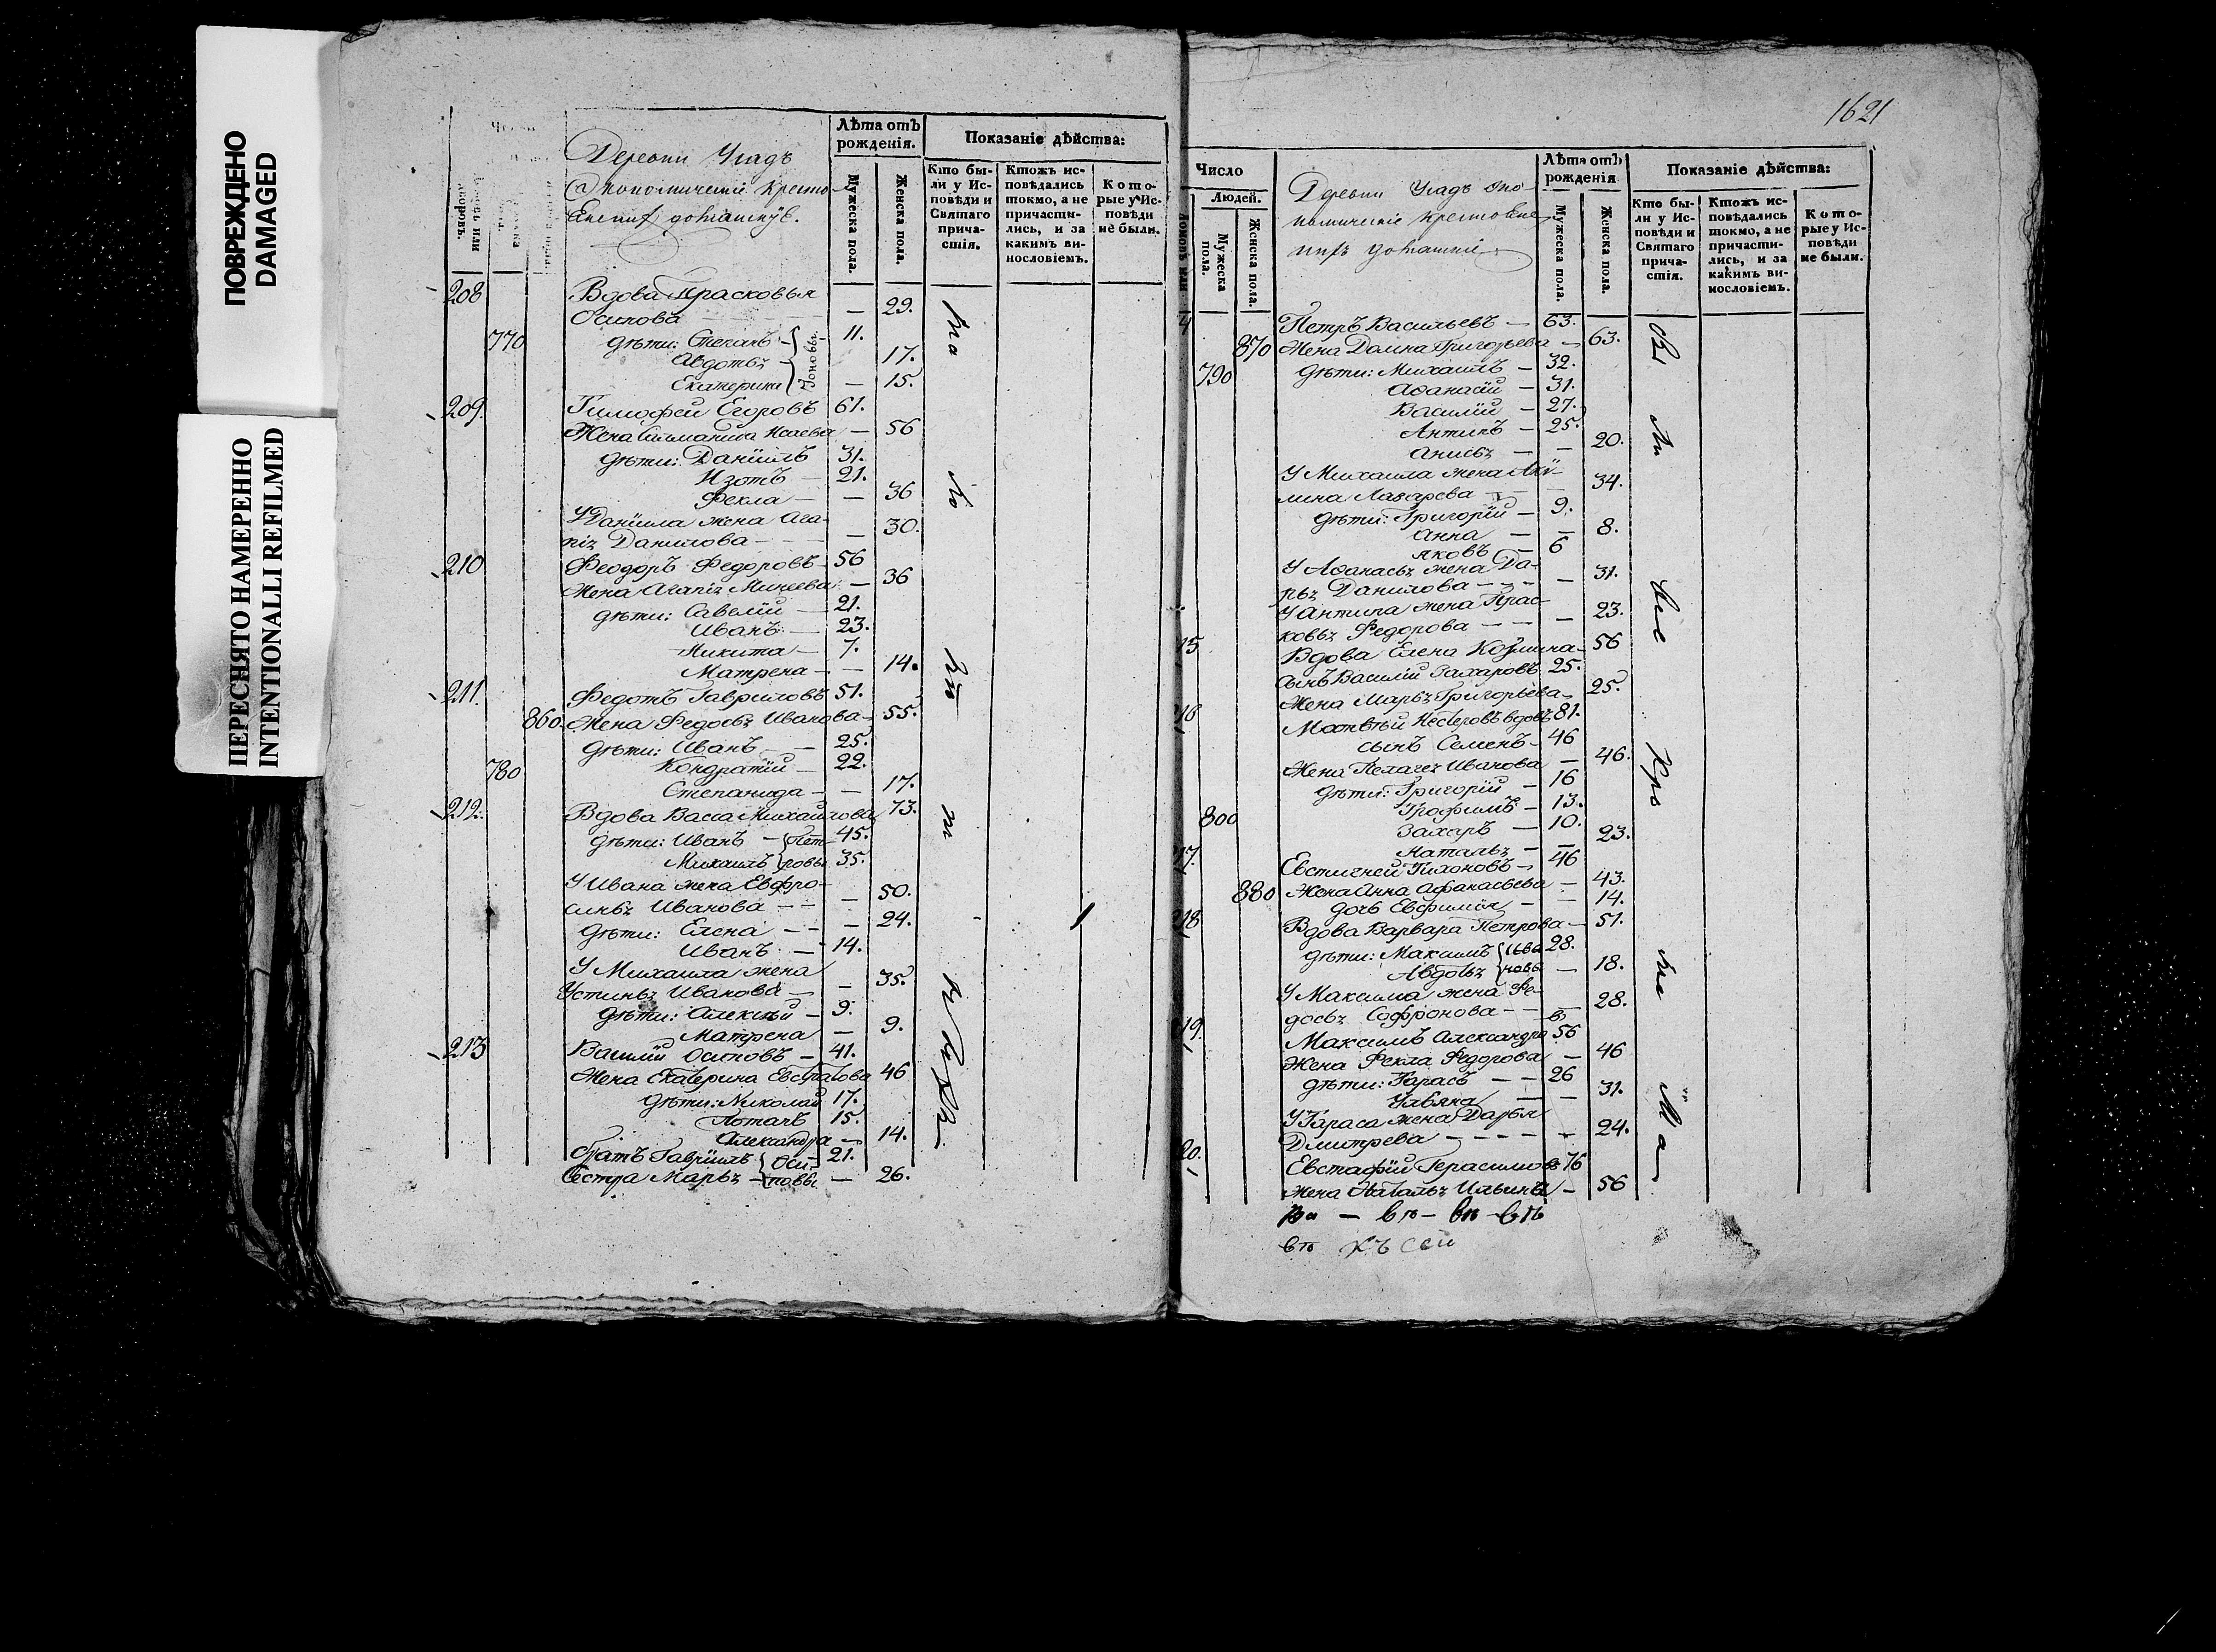 ПОВРЕЖДЕНО
DAMAGED
ПЕРЕСНЯТО НАМЕРЕННО
INTENTIONALLI REFILMED
Деревни Угадъ
Экономическіе кресть-
Лѣта отъ рожденія.
Мужеска пола.
Женска пола.
Показаніе дѣйства:
Кто бы-
ли у Ис-
повѣди и
Святаго
прича-
стія.
Ктожъ ис-
повѣдались
токмо, а не
причасти-
лись, и за
какимъ ви-
нословіемъ.
Кото-
рые у Ис-
повѣди
не были.
208 Вдова Прасковья
Осипова — 29.
770 дѣти: Степанъ 11.
Авдотья 17.
Екатерина — 15.
209. Тимофей Егоровъ 61.
Жена Исаева — 56
дѣти: Даніилъ 31.
Изотъ — 21.
Фекла — — 36
У Даніила жена Ага-
піа Данилова — — 30.
210 Феодоръ Федоровъ 56
Жена Агапіа Минеева — 36
дѣти: Савелій — 21.
Иванъ — 23.
Никита — 7.
Матрена — — 14.
211. Федотъ Гавриловъ 51.
860. Жена Федосья Иванова — 55.
дѣти: Иванъ — 25.
Кондратій — 22.
780 Степанида — — 17.
212. Вдова Васса Михайлова 73.
дѣти: Иванъ — Пет- 45.
Михаилъ ровы 35.
У Ивана жена Евфро-
синья Иванова — — 50.
дѣти: Елена — — 24.
Иванъ — 14.
У Михаила жена
Устинья Иванова — — 35.
дѣти: Алексѣй — 9.
Матрена — 9.
213 Василій Осиповъ — 41.
Жена Екатерина Евстратова 46
дѣти: Николай 17.
Потапъ 15.
Александра — 14.
братъ Гавріилъ Оси- 21.
Сестра Марья — повы — 26.
1621
Число
Людей.
Мужеска пола.
Женска пола.
Деревни Угадъ эко-
номическіе крестьяне
Лѣта отъ рожденія
Мужеска пола.
Женска пола.
Показаніе дѣйства:
Кто бы-
ли у Ис-
повѣди и
Святаго
прича-
стія.
Ктожъ ис-
повѣдались
токмо, а не
причасти-
лись, и за
какимъ ви-
нословіемъ.
Кото-
рые у Ис-
повѣди
не были.
4 Петръ Васильевъ — 63.
870 Жена Домна Григорьева — 63.
790 дѣти: Михаилъ — 32.
Аѳанасій — 31.
Василій — 27.
Антипъ — 25.
Анисья — — 20.
У Михаила жена
Лазарева — — 34.
дѣти: Григорій — 9.
Анна — — 8.
Яковъ — 6
У Аѳанасья жена Да-
рья Данилова — — — 31.
У Антипа жена Прас-
ковья Федорова — — — 23.
15 Вдова Елена Козмина — 56
сынъ Василій Захаровъ 25.
Жена Марья Григорьева — 25.
16 Матвѣй Нестеровъ вдовъ 81.
сынъ Семенъ — 46
Жена Пелагея Иванова — 46.
дѣти: Григорій — 16
Трофимъ — 13.
800 Захаръ — 10.
Наталья — — 23.
17. Евстигней Тихоновъ — 46
880 Жена Анна Афанасьева — 43.
дочь Евфимія — — 14.
18 Вдова Варвара Петрова — 51.
дѣти: Максимъ Ива 28.
Авдотья новы — 18.
У Максима жена Фе-
досья Софронова — — 28.
19. Максимъ Александровъ 56
Жена Фекла Федорова — 46
дѣти: Тарасъ — — 26
Ульяна — — 31.
У Тараса жена Дарья
Дмитрева — — — — 24.
20. Евстафій Герасимовъ 76
Жена Наталья Ильина — 56